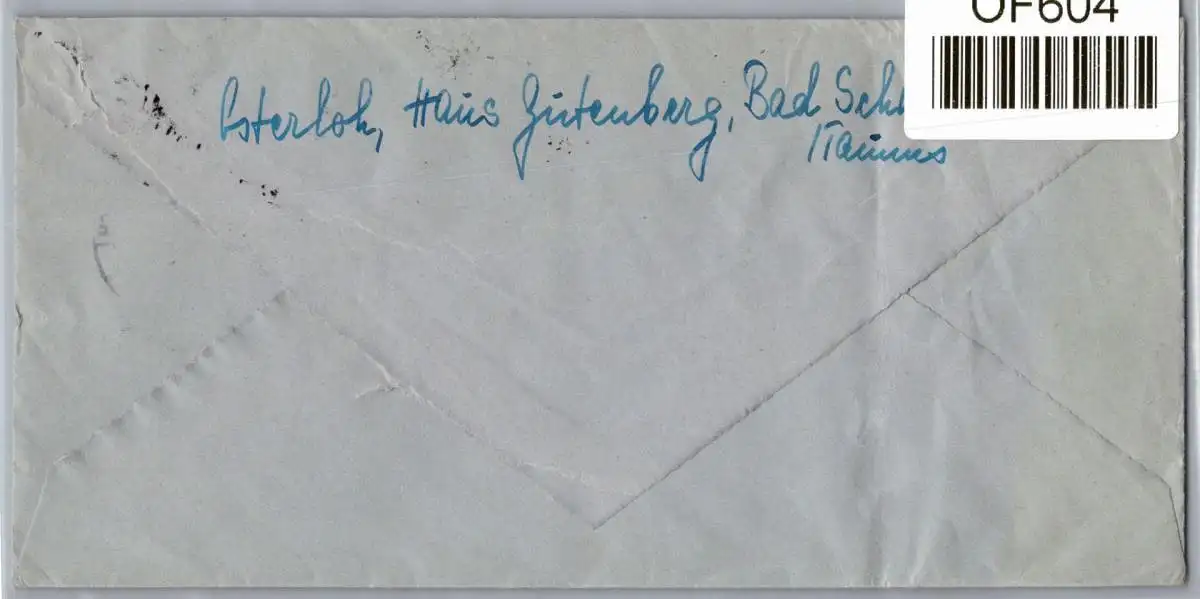 OF604
Osterloh, Haus Gutenberg, Bad Sch
/Taunus